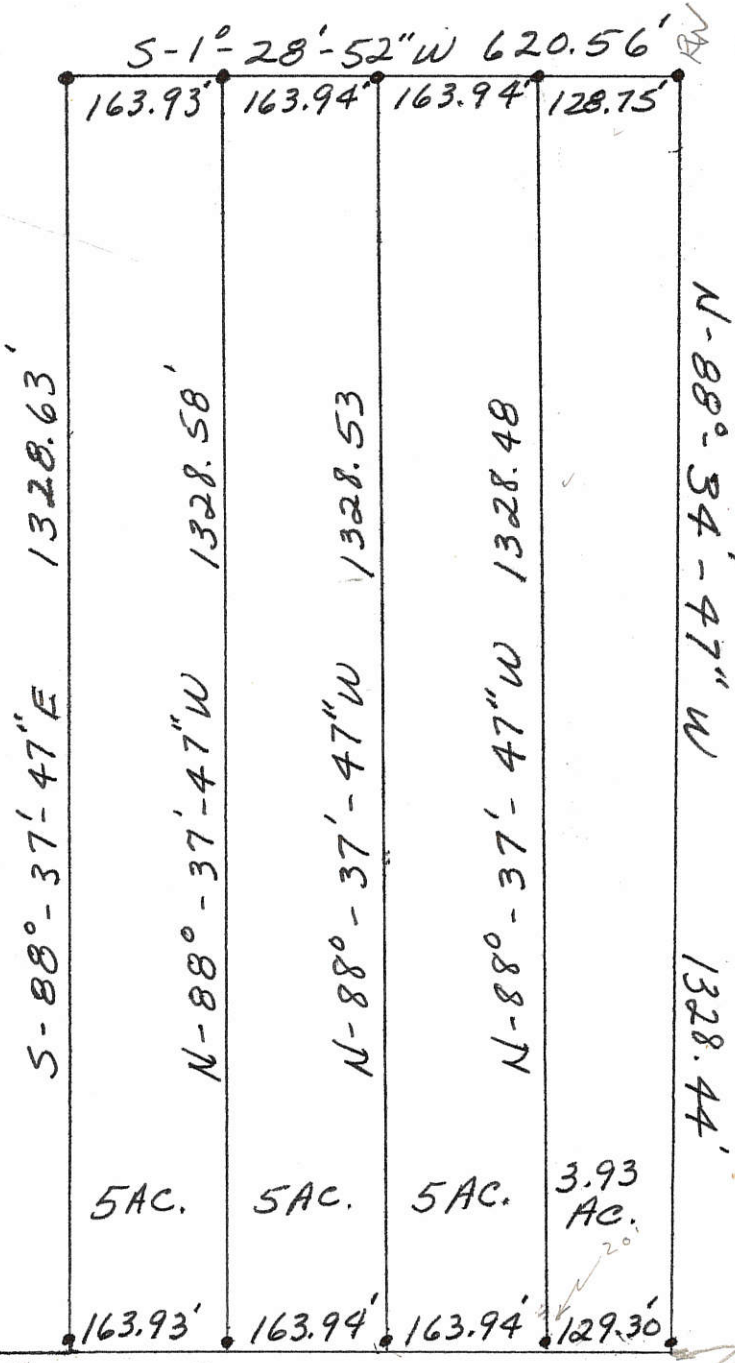 S-1°-28'-52"W 620.56'
RW
163.93' 163.94' 163.94' 128.75'
S-88°-37'-47"E 1328.63'
N-88°-37'-47"W 1328.58'
N-88°-37'-47"W 1328.53
N-88°-37'-47"W 1328.48
N-88°-34'-47"W 1328.44'
5AC. 5AC. 5AC. 3.93
AC.
20'
163.93' 163.94' 163.94' 129.30